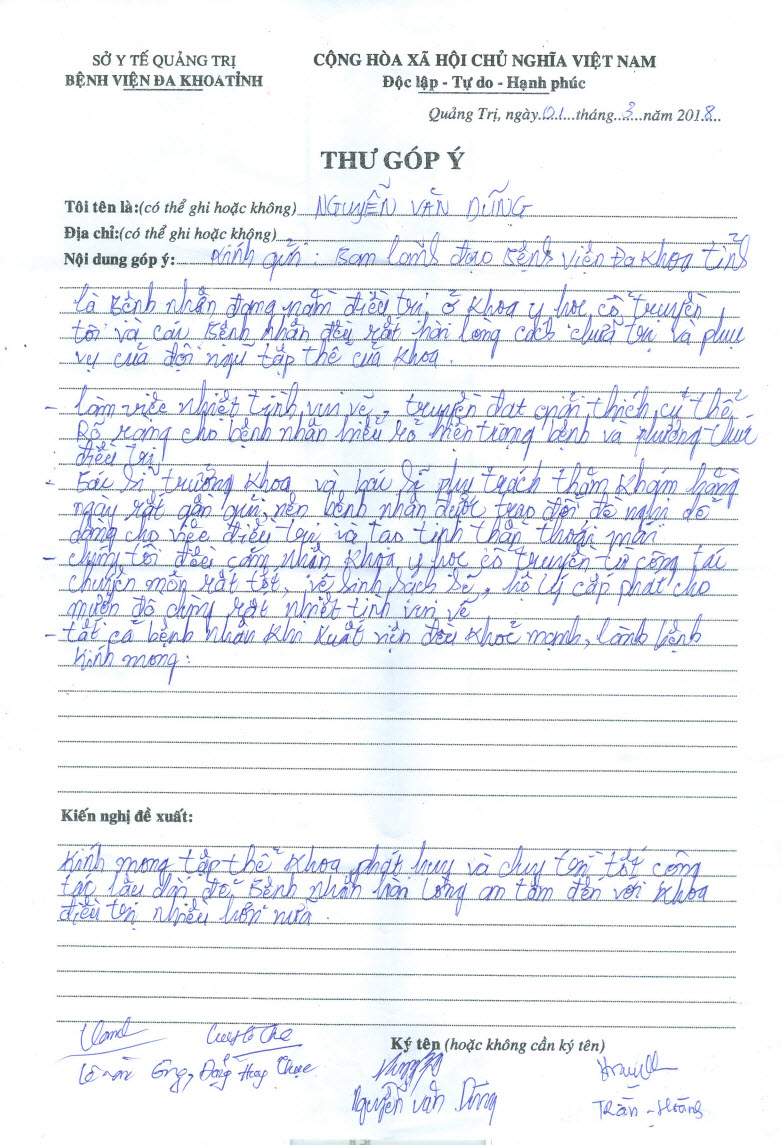 SỞ Y TẾ QUẢNG TRỊ
BỆNH VIỆN ĐA KHOA TỈNH
CỘNG HÒA XÃ HỘI CHỦ NGHĨA VIỆT NAM
Độc lập - Tự do - Hạnh phúc
Quảng Trị, ngày 01 tháng 3 năm 2018
THƯ GÓP Ý
Tôi tên là:(có thể ghi hoặc không) NGUYỄN VĂN DŨNG
Địa chỉ:(có thể ghi hoặc không)
Nội dung góp ý: Kính gửi : Ban lãnh đạo Bệnh viện Đa Khoa tỉnh
là Bệnh nhân đang nằm điều trị ở khoa y học cổ truyền
tôi và các Bệnh nhân đều rất hài lòng cách chữa trị và phục
vụ của đội ngũ tập thể của khoa.
- làm việc nhiệt tình vui vẽ, truyền đạt giải thích cụ thể
Rõ ràng cho bệnh nhân hiểu rỏ hiện trạng bệnh và phương thức
điều trị
- Bác sĩ trưởng khoa và bác sĩ phụ trách thăm khám hằng
ngày rất gần gũi nên bệnh nhân được trao đổi đề nghị dể
dàng cho việc điều trị và tạo tinh thần thoải mái
- chúng tôi đều công nhận khoa y học cổ truyền từ công tác
chuyên môn rất tốt, vệ sinh sạch sẽ, hộ lý cấp phát cho
mượn đồ dùng rất nhiệt tình vui vẽ
- tất cả bệnh nhân khi xuất viện đều khoẻ mạnh, lành bệnh
Kính mong :
Kiến nghị đề xuất:
Kính mong tập thể khoa phát huy và duy trì tốt công
tác lâu dài để Bệnh nhân hài lòng an tâm đến với khoa
điều trị nhiều hơn nữa.
Ký tên (hoặc không cần ký tên)
Đặng Hồng Chục
Nguyễn Văn Dũng
Trần - Hoàng